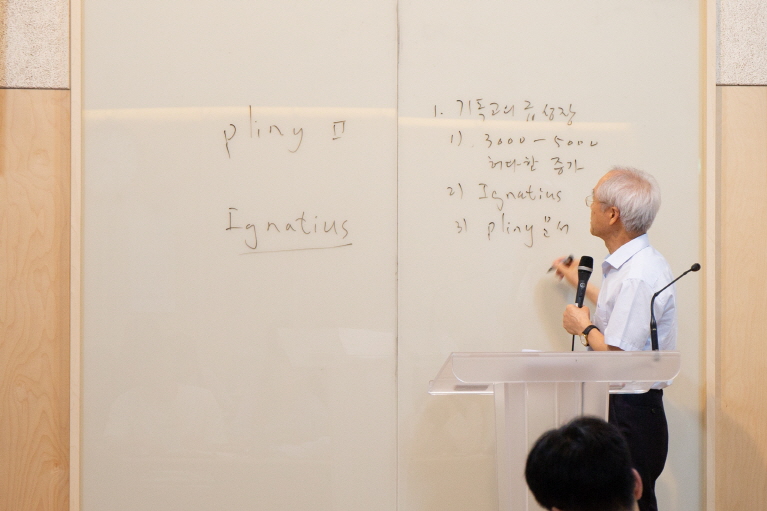 pliny II
Ignatius
1. 기독교의 급성장
1). 3000-5000
허다한 증가
2) Ignatius
3) pliny 문서